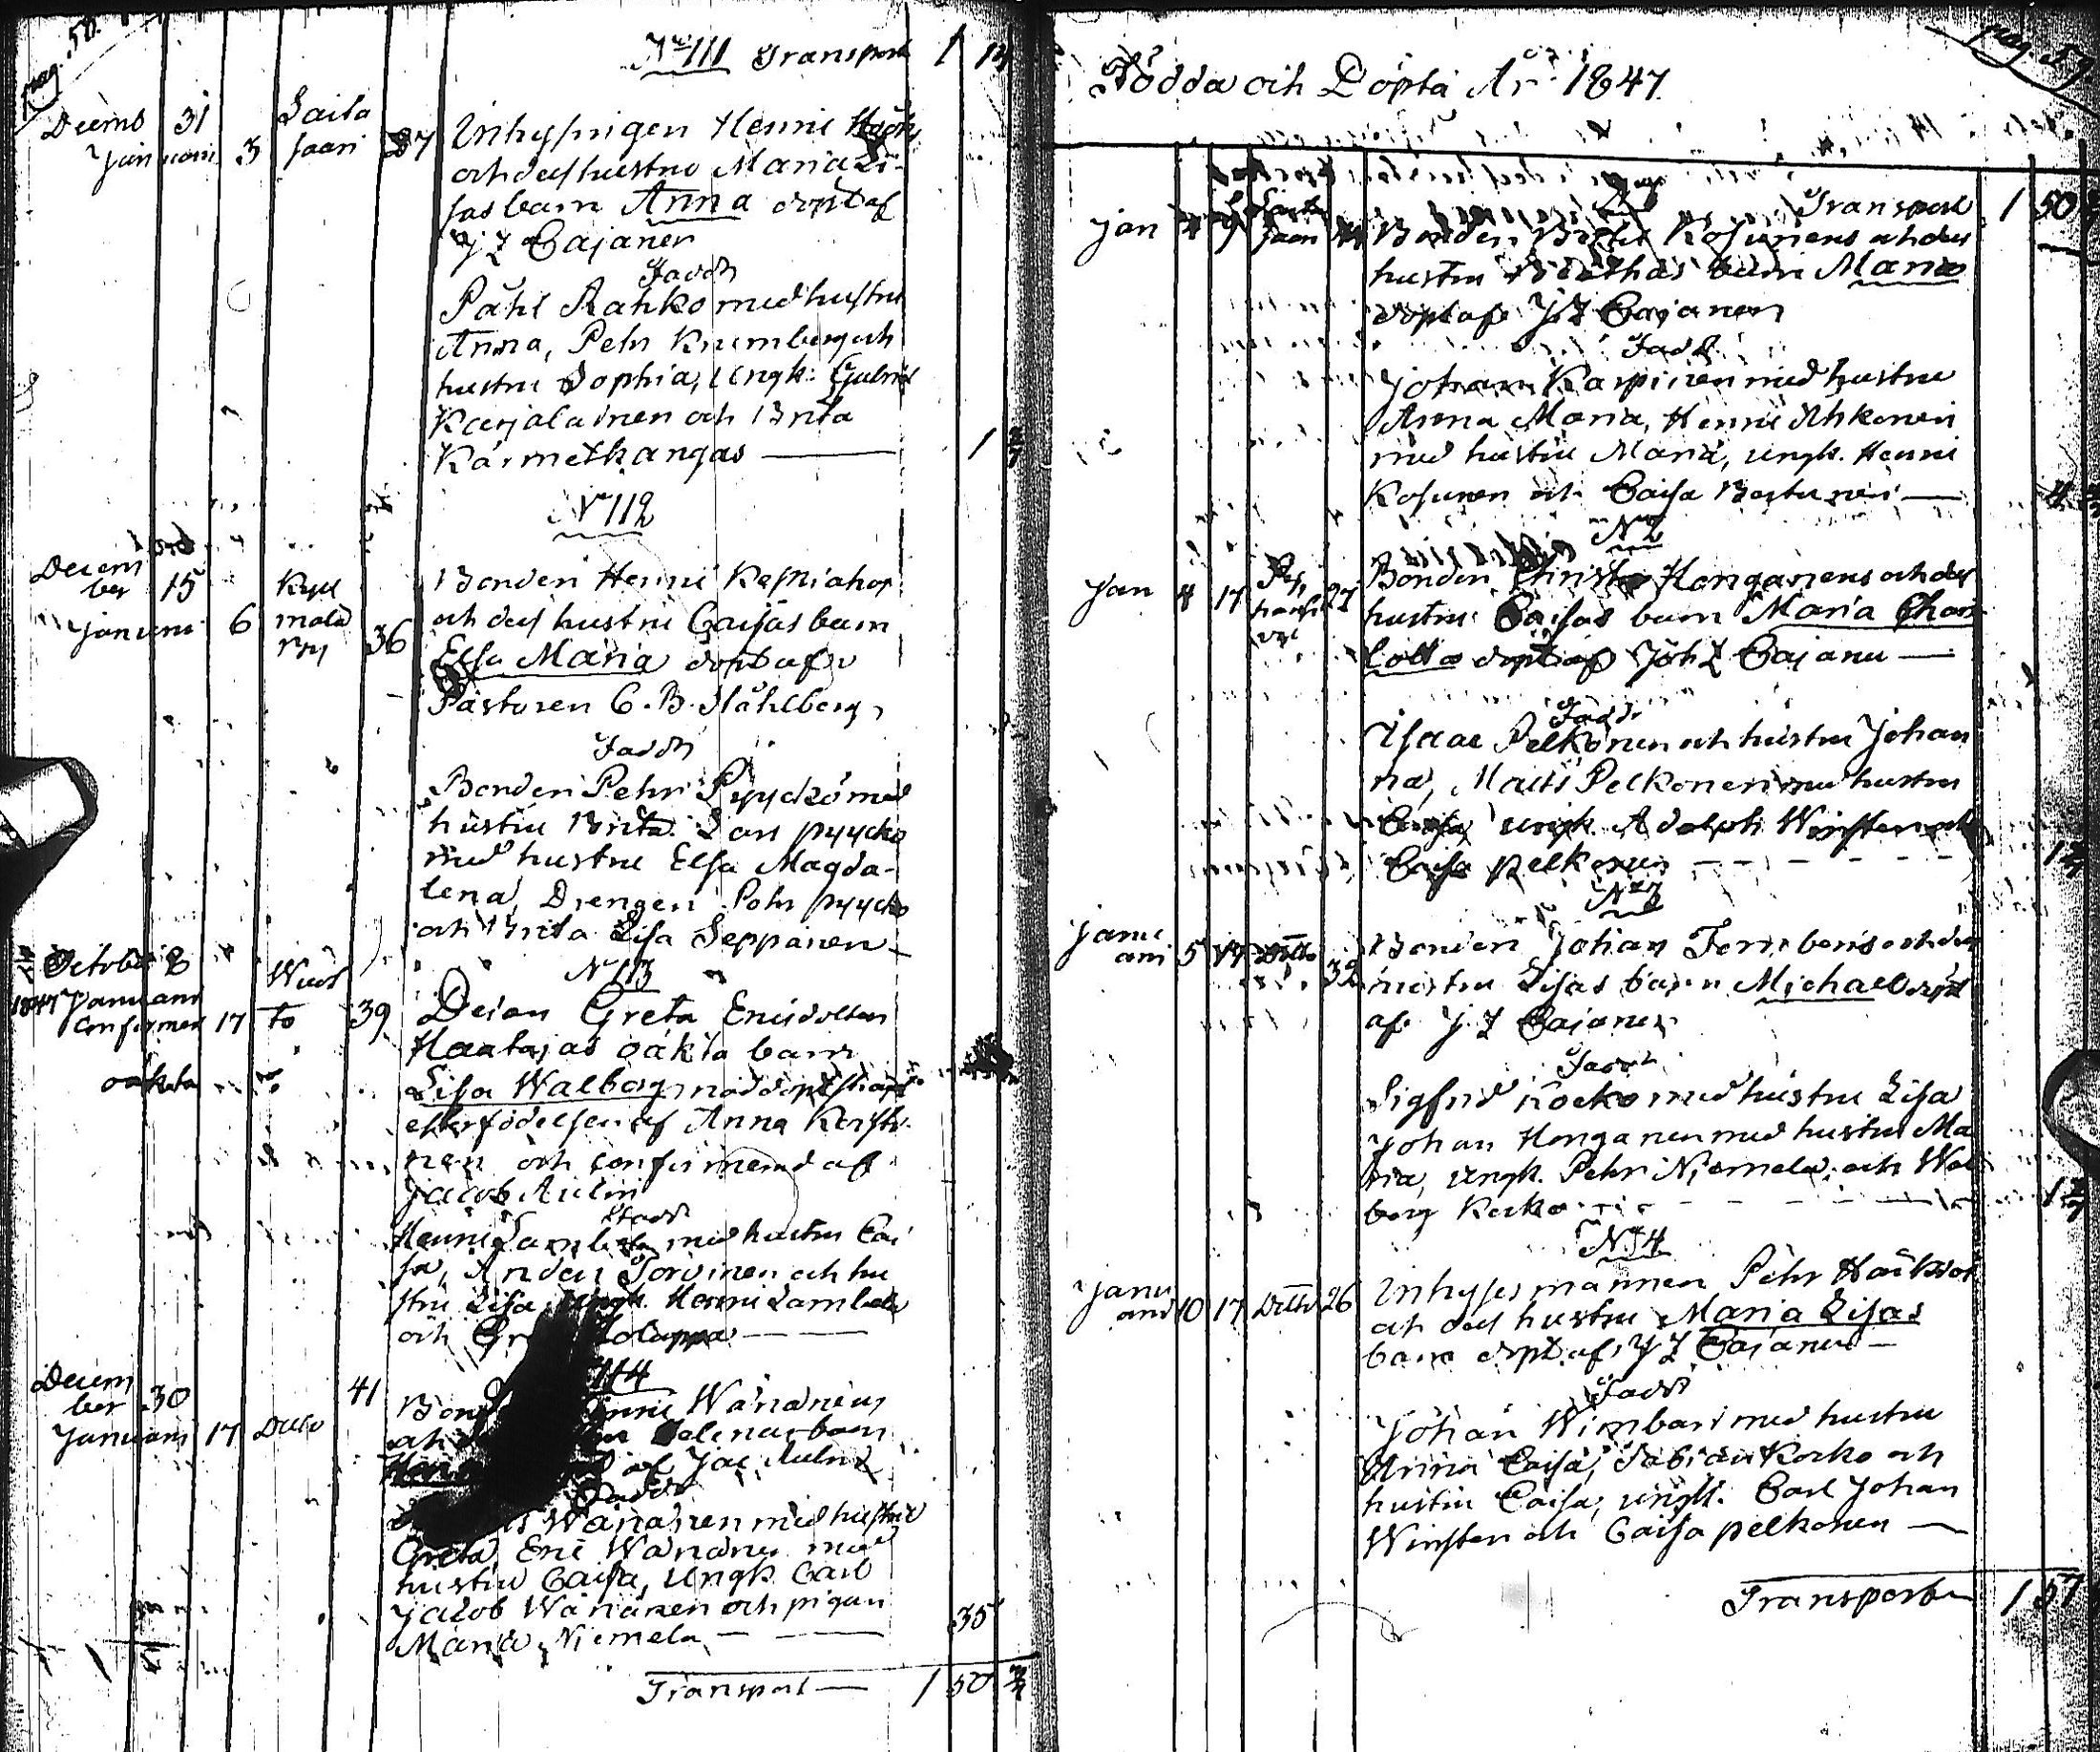 pag. 50.
No 111 Transport 1 14
Decemb 31 Laita
Januari 3 saari 27 Inhysingen Henric
och dess hustru Maria Li-
sas barn Anna döpt af
J Z Cajaner
Fadd:
Påhl Rahko med hustru
Anna, Pehr Krumberg och
hustru Sophia, Ungk. Gabriel
Karjalainen och Brita
Kärmetkangas — 1
N 112
Decem
ber 15 Kyl
Januari 6 mälä 36
Bonden Henric Kespiahos
och dess hustru Caisas barn
Elsa Maria döpt af
Pastoren C. B. Ståhlberg
Fadd:
Bonden Pehr Pyyckö med
hustru Brita. Lars pyyckö
med hustru Elsa Magda-
lena, Drengen Pehr pyyckö
och Brita Lisa Seppänen —
N 113
October 8 Wuot
1847 Januari
Confirmer 17 to 39
oäkta
Deian Greta Ericsdotter
Haatajas oäkta barn
Lisa Walborg, nöddöpt strax
efter födelsen af Anna Kersti-
nen och confirmerad af
Jacob Aulin
Fadd:
Henric Lambela med hustru Cai
sa, Anders Torvinen och hu
stru Lisa, Ungk. Henric Lambela
och Holappa —
114
Decem
ber 30 41
Januari 17 Ditto
Wänänens
Helenas barn
af Jac Aulin
Fadd:
Wänänen med hustru
Greta, Eric Wänänen med
hustru Caisa, Ungk. Carl
Jacob Wänänen och pigan
Maria Niemelä — 35
Transport — 1 50
pag. 51
Födda och Döpta År 1847.
Transport 1 50
Jan
Bonden Kosunens och dess
hustru barn Maria
döpt af J Z Cajaner
Fadd:
Johan Karpinen med hustru
Anna Maria, Henric Ahkonen
med hustru Maria, ungk. Henric
Kosunen och Caisa
N 2
Jan 4 17 27
Bonden Honganens och dess
hustru Caisas barn Maria Char
lotta döpt af Joh Z Cajaner —
Fadd:
Isaac Pelkonen och hustru Johan
na, Matts Pelkonen med hustru
Caisa, ungk. Adolph Winsten och
Caisa pelkonen
N 3
Janu
ari 5 17 Ditto 32
Bonden Johan Tornbergs och dess
hustru Lisas barn Michael döpt
af J Z Cajaner
Fadd:
Sigfrid Kocko med hustru Lisa
Johan Honganen med hustru Ma
ria, Ungk. Pehr Niemelä och Wal
borg Kocko
N 4
Janu
ari 10 17 Ditto 26
Inhyses mannen Pehr
och dess hustru Maria Lisas
barn döpt af J Z Cajaner —
Fadd:
Johan Wimbari med hustru
Anna Caisa, Fabian Kocko och
hustru Caisa, ungk. Carl Johan
Winsten och Caisa pelkonen —
Transport 1 57